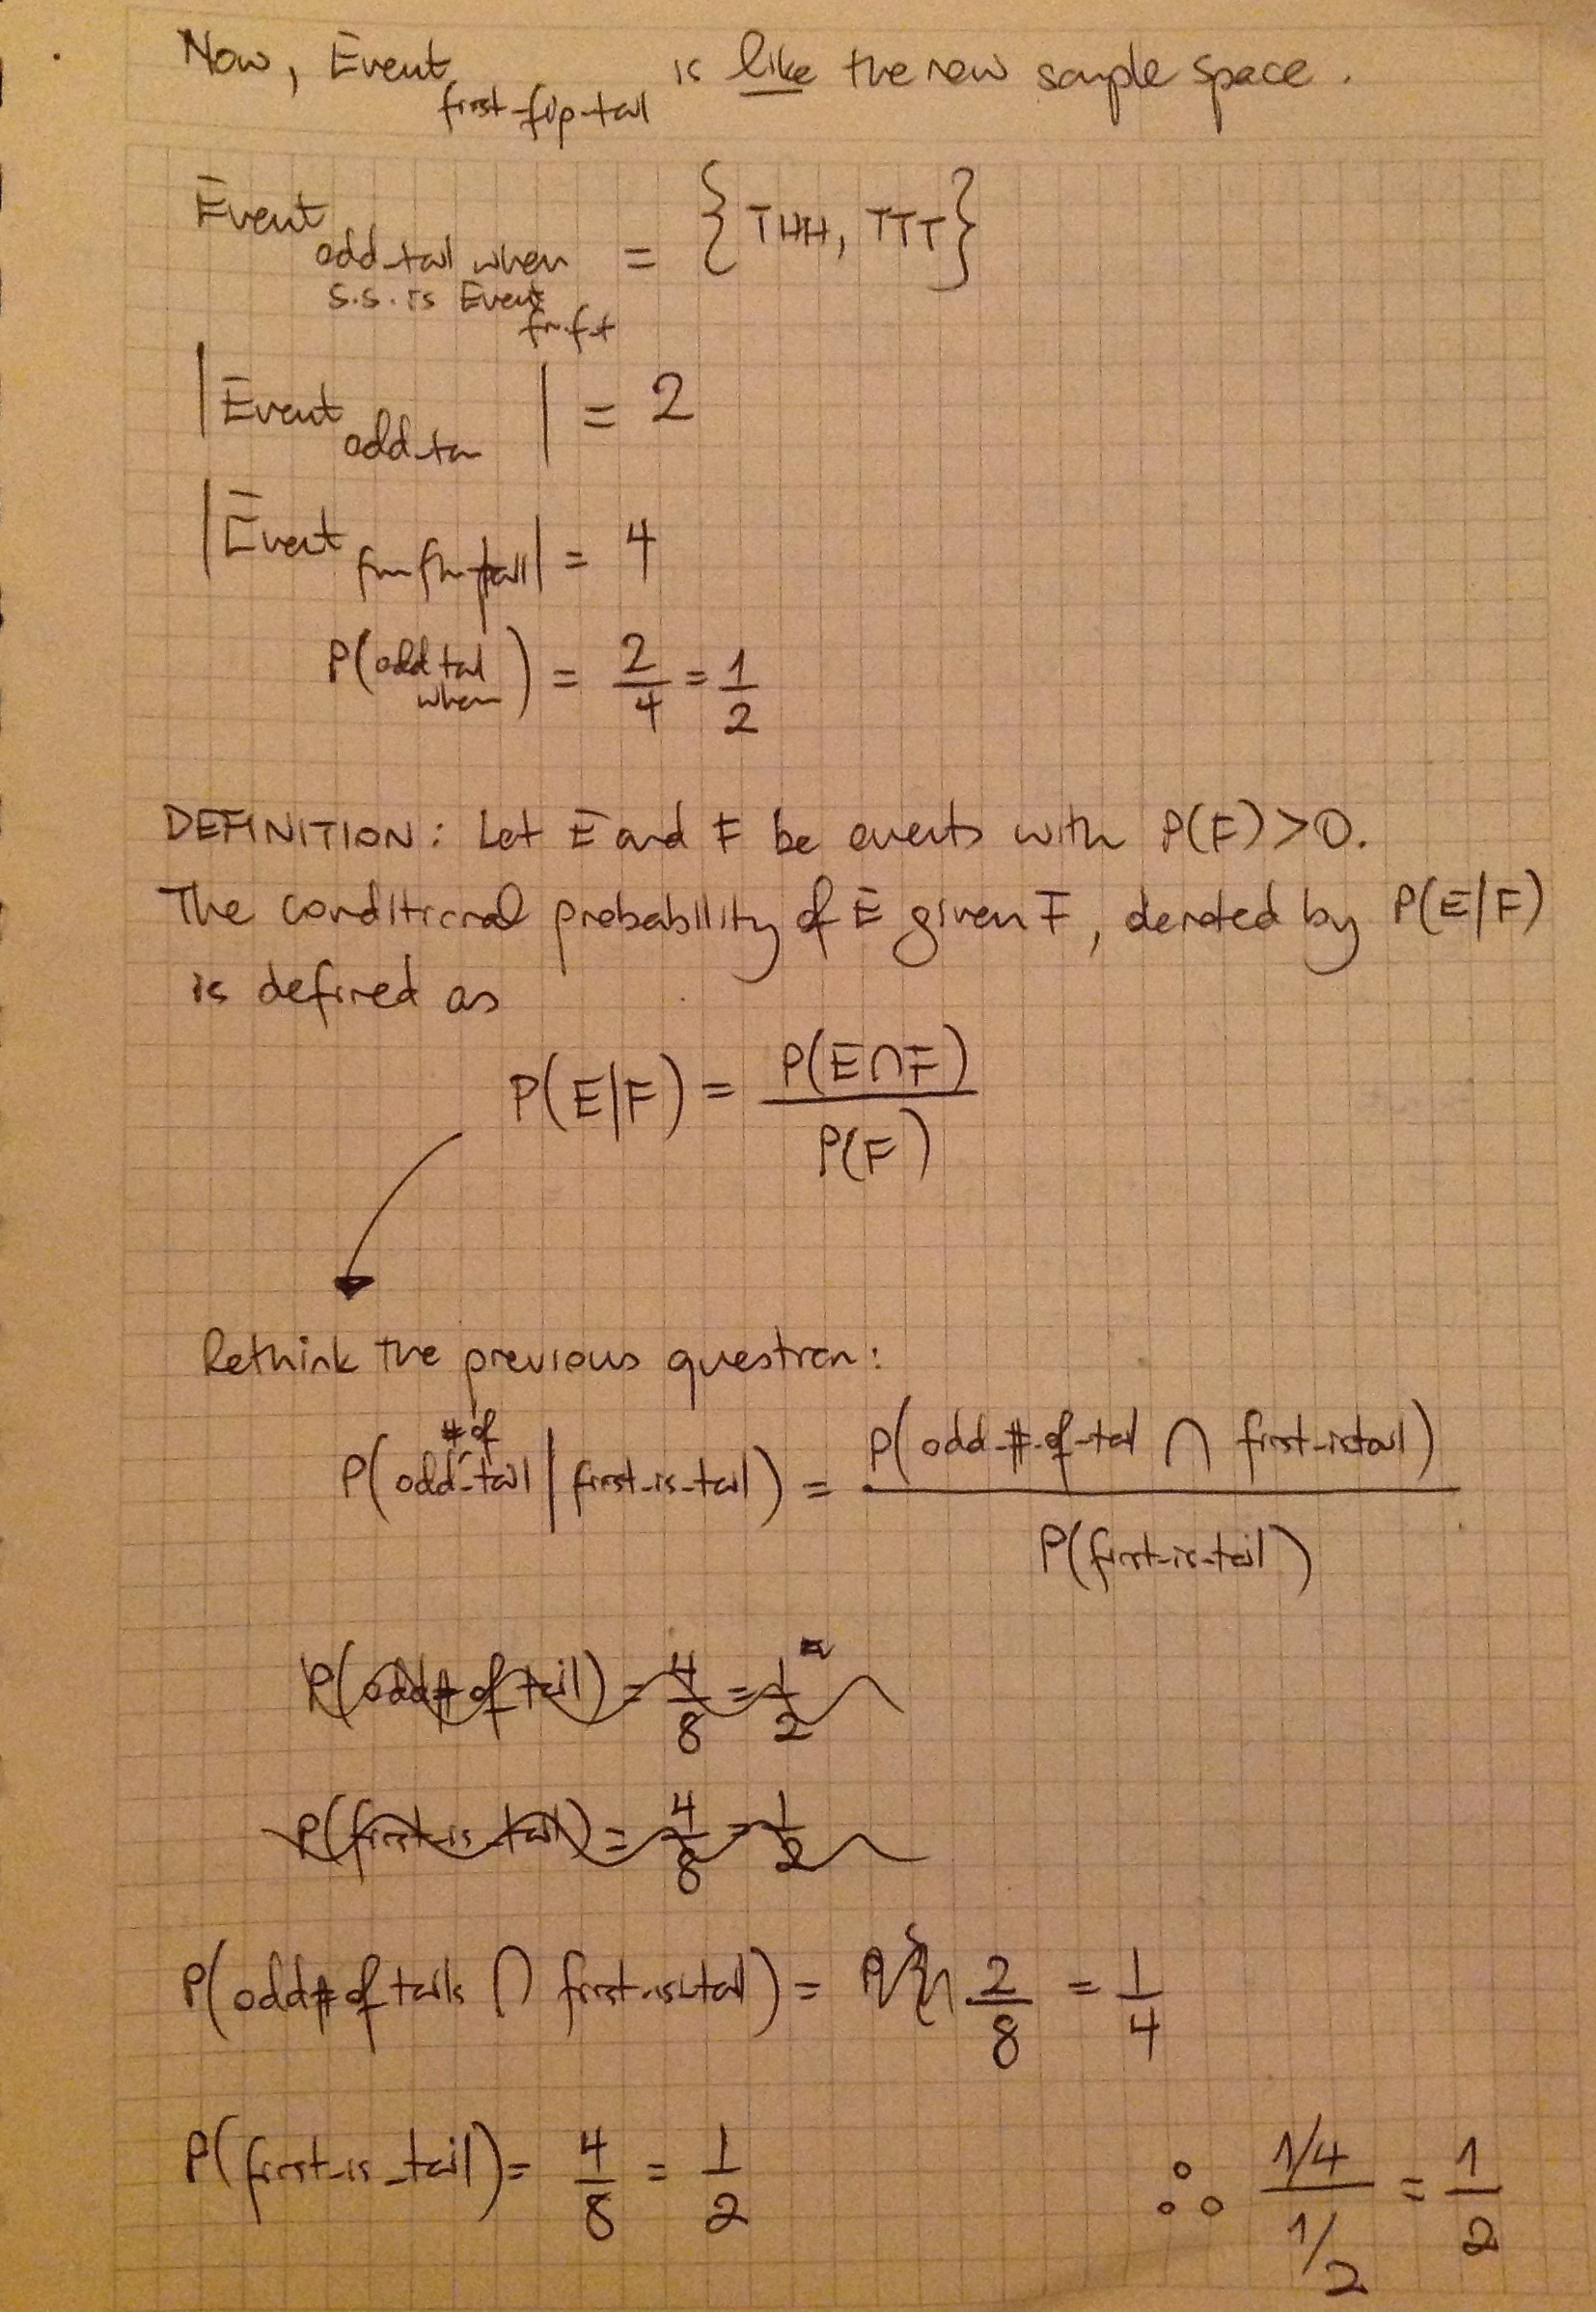 Now, Event first-flip-tail is like the new sample space.
Event odd-tail when s.s. is Event = {THH, TTT}
|Event odd-ta | = 2
|Event tail| = 4
P(odd tail when) = 2/4 = 1/2
DEFINITION: Let E and F be events with P(F)>0.
The conditional probability of E given F, denoted by P(E|F)
is defined as
P(E|F) = P(E∩F) / P(F)
Rethink the previous question:
P(odd # of tail | first-is-tail) = P(odd-#-of-tail ∩ first-is-tail) / P(first-is-tail)
P(odd # of tail) = 4/8 = 1/2
P(first-is-tail) = 4/8 = 1/2
P(odd # of tails ∩ first-is-tail) = 2/8 = 1/4
P(first-is-tail) = 4/8 = 1/2 ∴ 1/4 / 1/2 = 1/2